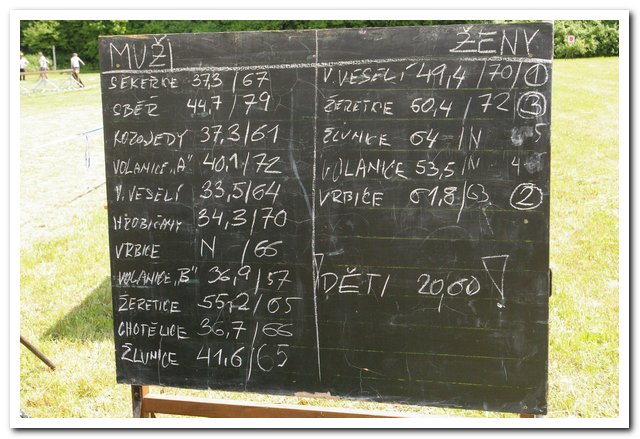 MUŽI
SEKEŘICE 37,3/67
SBĚŘ 44,7/79
KOZOJEDY 37,3/61
VOLANICE "A" 40,1/72
V. VESELÍ 33,5/64
HROBIČANY 34,3/70
VRBICE N /66
VOLANICE "B" 36,9/57
ŽERETICE 55,2/65
CHOTĚLICE 36,7/66
ŽLUNICE 41,6/65
ŽENY
V. VESELÍ 49,4/70/ 1
ŽERETICE 60,4/72 3
ŽLUNICE 64 /N 5
VOLANICE 53,5/N 4
VRBICE 61,8/63 2
DĚTI